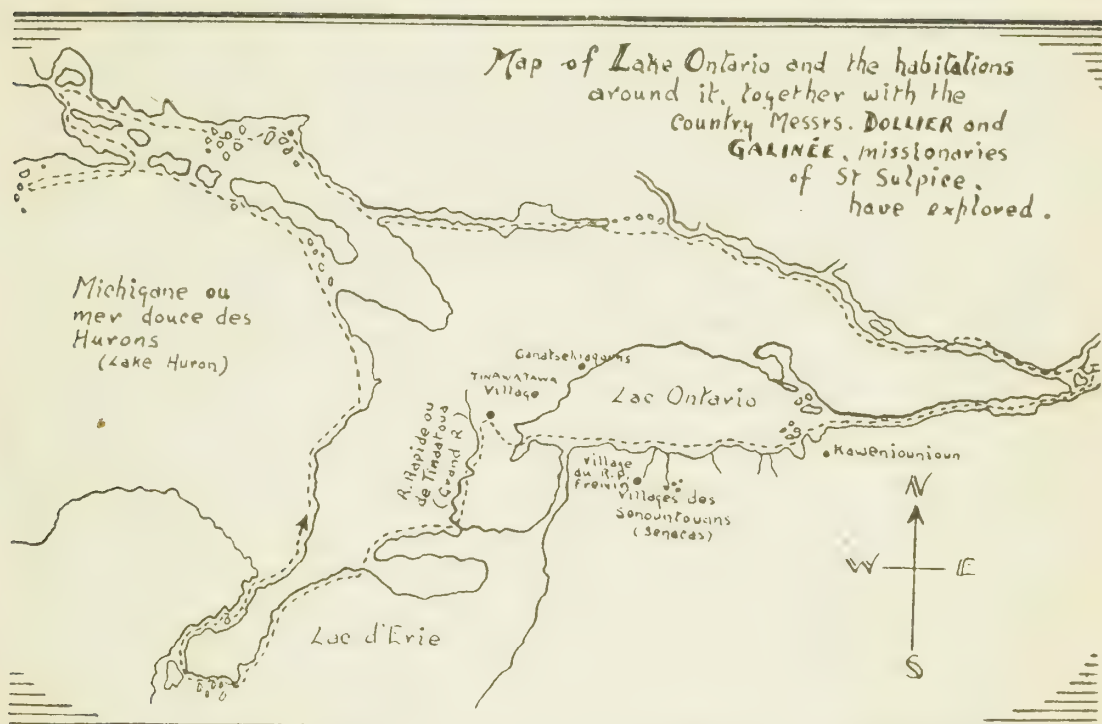 Map of Lake Ontario and the habitations
around it, together with the
Country Messrs. DOLLIER and
GALINÉE, missionaries
of St Sulpice,
have explored.
Michigane ou
mer douce des
Hurons
(Lake Huron)
Ganatsekiagouns
TINAWATAWA
Village
Lac Ontario
R. Rapide ou
de Tinaatoua
(Grand R.)
Village
du R.P.
Fremin
Villages des
Sonountouans
(Senecas)
Kaweniounioun
Lac d'Erie
N
W
E
S